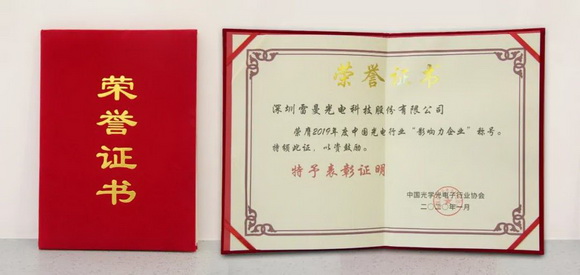 荣誉证书
荣誉证书
深圳雷曼光电科技股份有限公司
荣膺2019年度中国光电行业“影响力企业”称号。
特颁此证，以资鼓励。
特予表彰证明
中国光学光电子行业协会
二〇二〇年一月